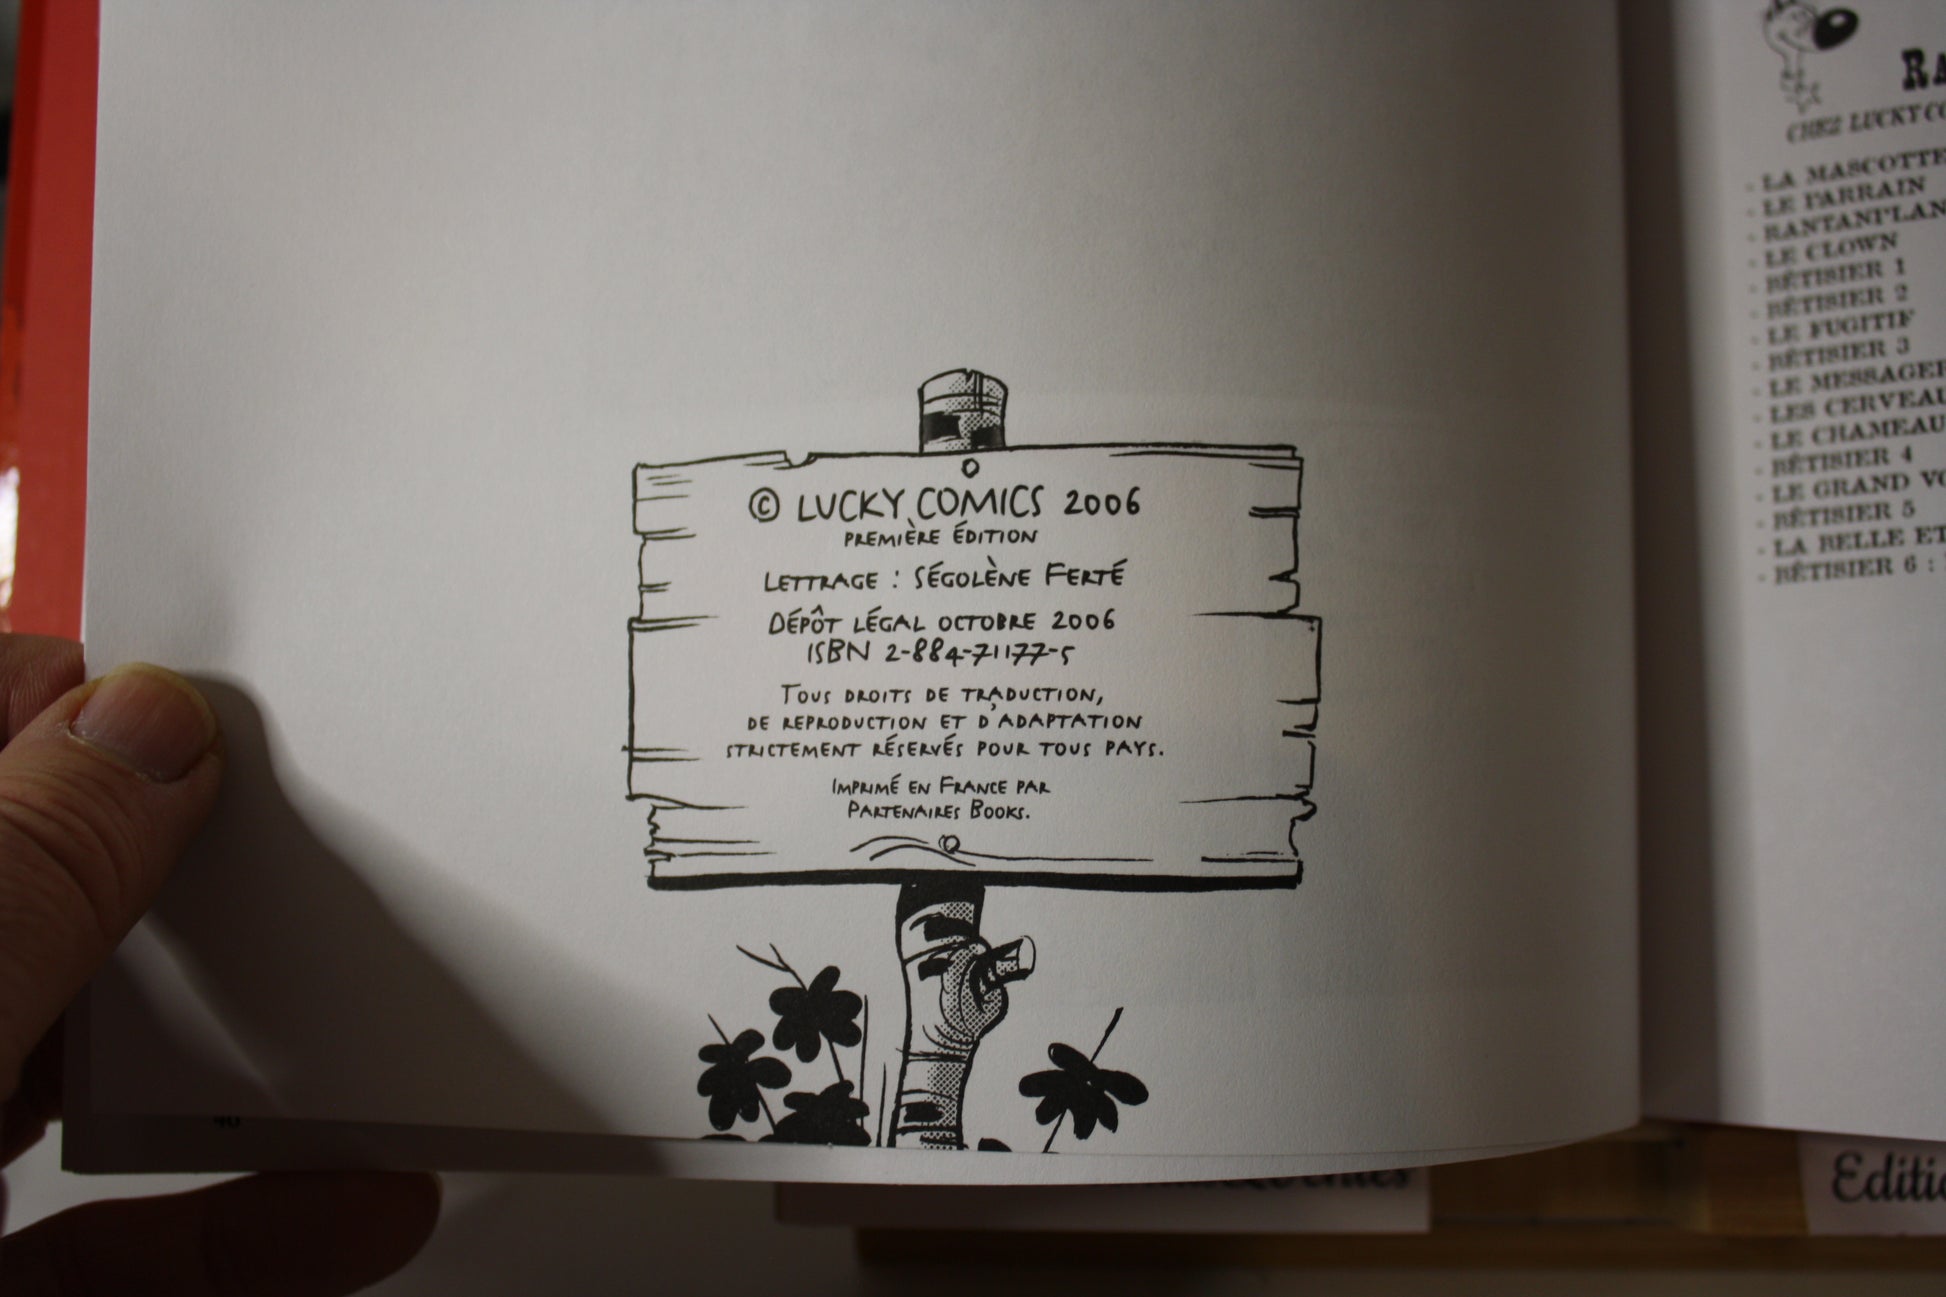 © LUCKY COMICS 2006
PREMIÈRE ÉDITION
LETTRAGE : SÉGOLÈNE FERTÉ
DÉPÔT LÉGAL OCTOBRE 2006
ISBN 2-884-71177-5
TOUS DROITS DE TRADUCTION,
DE REPRODUCTION ET D'ADAPTATION
STRICTEMENT RÉSERVÉS POUR TOUS PAYS.
IMPRIMÉ EN FRANCE PAR
PARTENAIRES BOOKS.
CHEZ LUCKY
- LA MASCOTTE
- LE PARRAIN
- RANTANPLAN
- LE CLOWN
- BÊTISIER 1
- BÊTISIER 2
- LE FUGITIF
- BÊTISIER 3
- LE MESSAGER
- LES CERVEAU
- LE CHAMEAU
- BÊTISIER 4
- LE GRAND
- BÊTISIER 5
- LA BELLE ET
- BÊTISIER 6 :